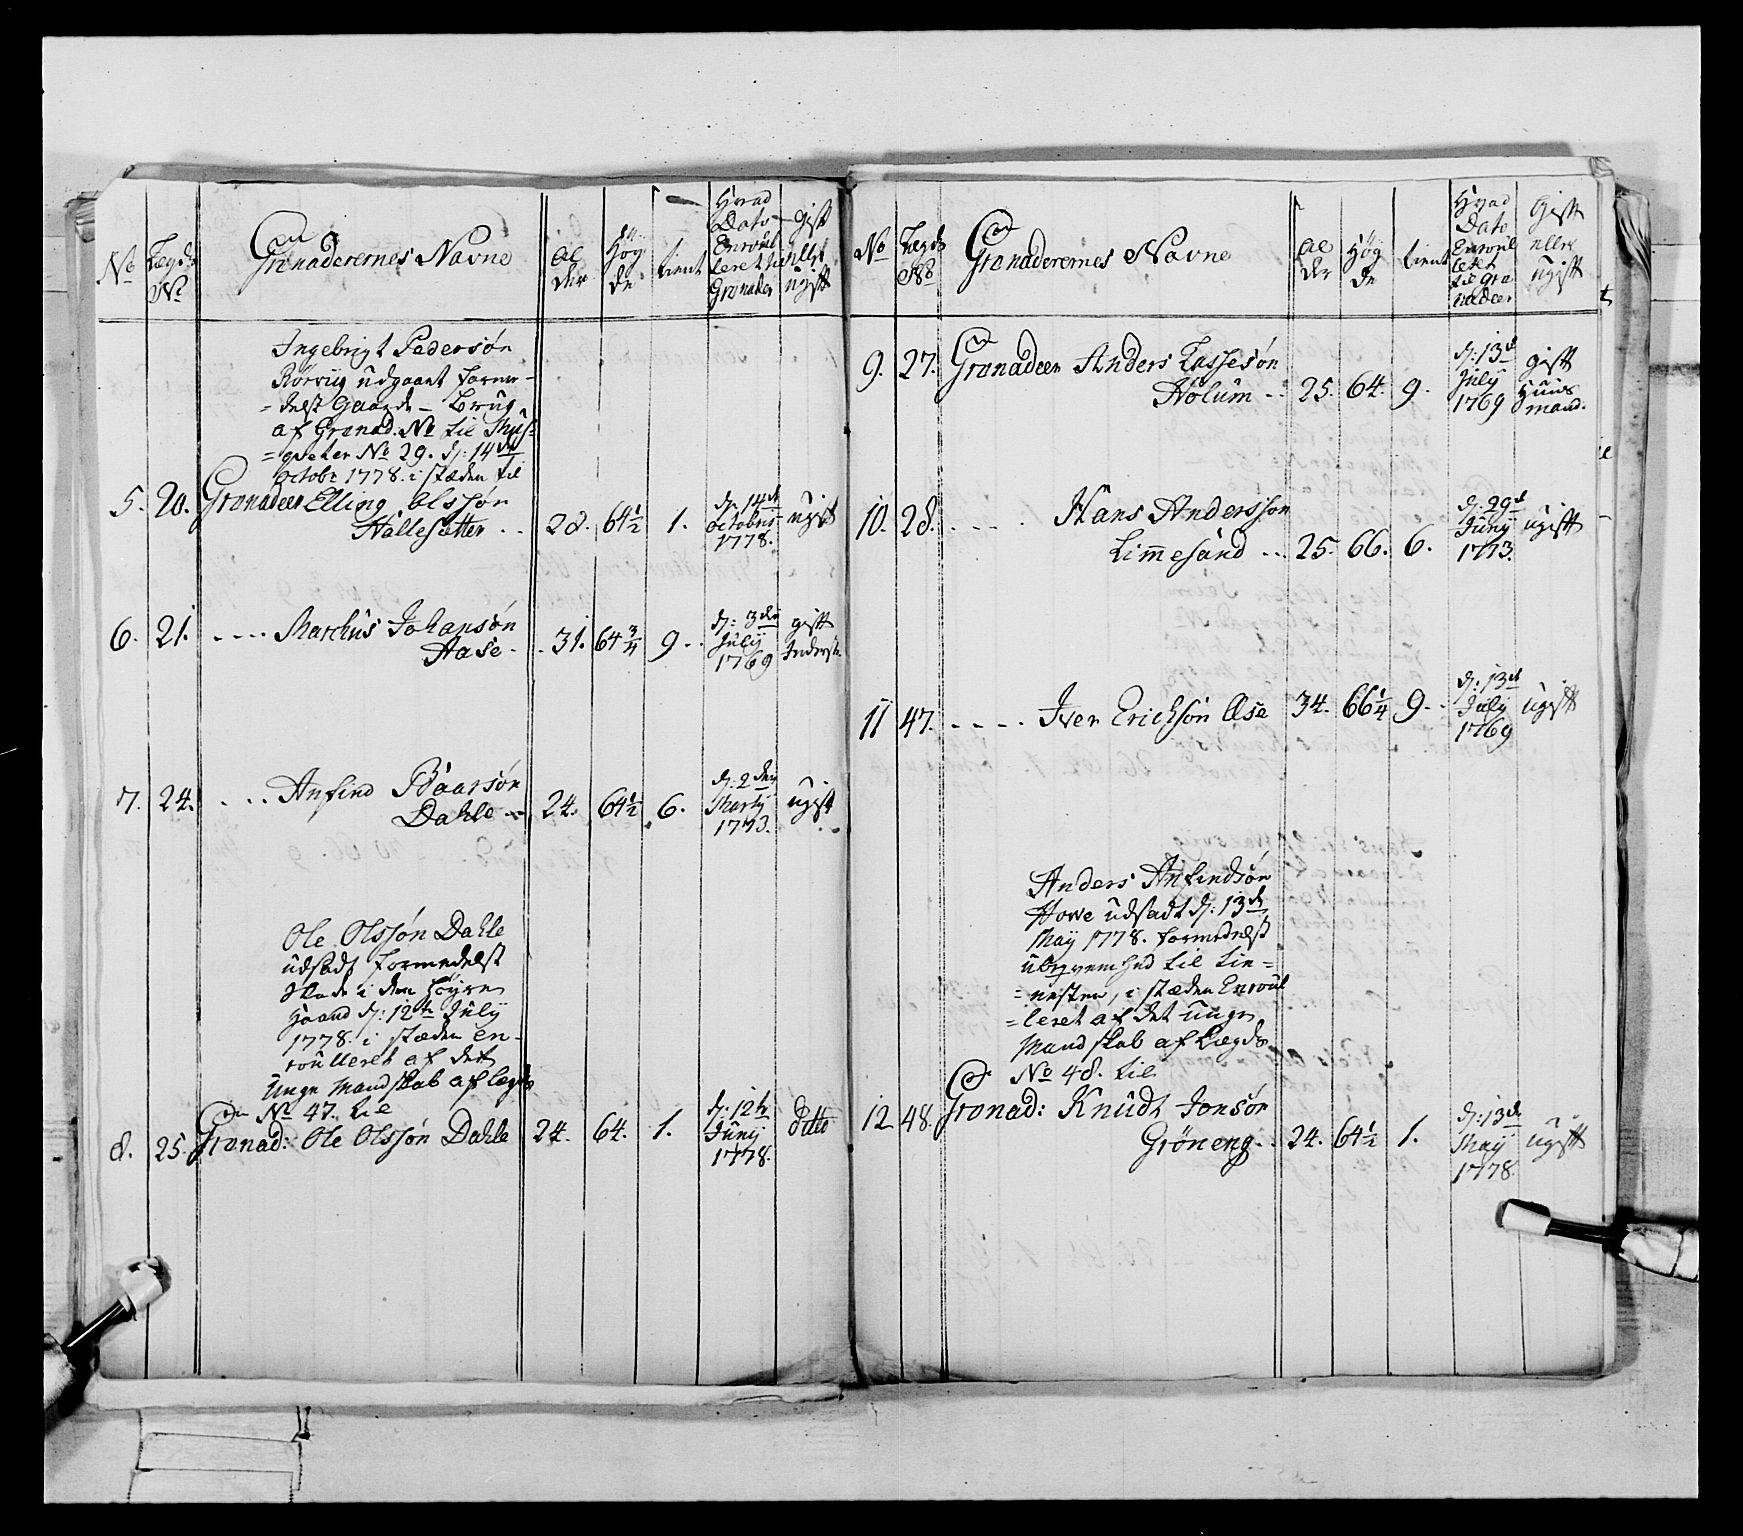 No
Lægds No
Granaderernes Navne
al der
Høg de
tient
Hvad Dato Enroulleret til Granader
gift eller ugift
Ingebrigt Pedersøn
Rörvüg udgaaet forme-
=delst Gaards-Brug
af Granad. No til Mus-
=queter No 29. d: 14de
octobr 1778. i stæden til
5. 20. Granadeer Elling Olssøn
Hallesætter .. 28. 64½ 1. d: 14de octobris 1778. ugift
6. 21. .... Marchus Johansøn
Aase . . 31. 64¾ 9 .. d: 3die July 1769 gift Inderst
7. 24. .... Anfind Baarsøn
Dahle .. 24. 64½ 6. d: 2den Marty 1773. ugift
Ole Olssøn Dahle
udsadt formedelst
Skade i den höyre
Haand d: 12te July
1778. i stæden en-
roulleret af det
Unge Mandskab af Lægds
No 47. til
8. 25. Granad: Ole Olssøn Dahle 24. 64. 1. d: 12te Juny 1778. ditto
No
Lægds No
Granaderernes Navne
al der
Høg de
tient
Hvad Dato Enroulleret til Granadeer
Gift eller ugift
9. 27. Granadeer Anders Lassesøn
Holum .. 25. 64. 9. d: 13de July 1769 gift Huusmand.
10. 28. .... Hans Andersson
Limmesand .. 25. 66. 6. d: 29de Juny 1773. ugift
11 47. .... Iver Erichsøn Øse 34. 66¼ 9. d: 13de July 1769 ugift
Anders Anfindsøn
Howe udsadt d: 13de
Maÿ 1778. formedelst
ubeqvemhed til tie=
=nesten, i stæden Enroul
=leret af det unge
Mandskab af Lægds
No 48. til
12 48. Granad: Knudt Jonsøn
Gröneng. 24. 64½ 1. d: 13de Maÿ 1778. ugift